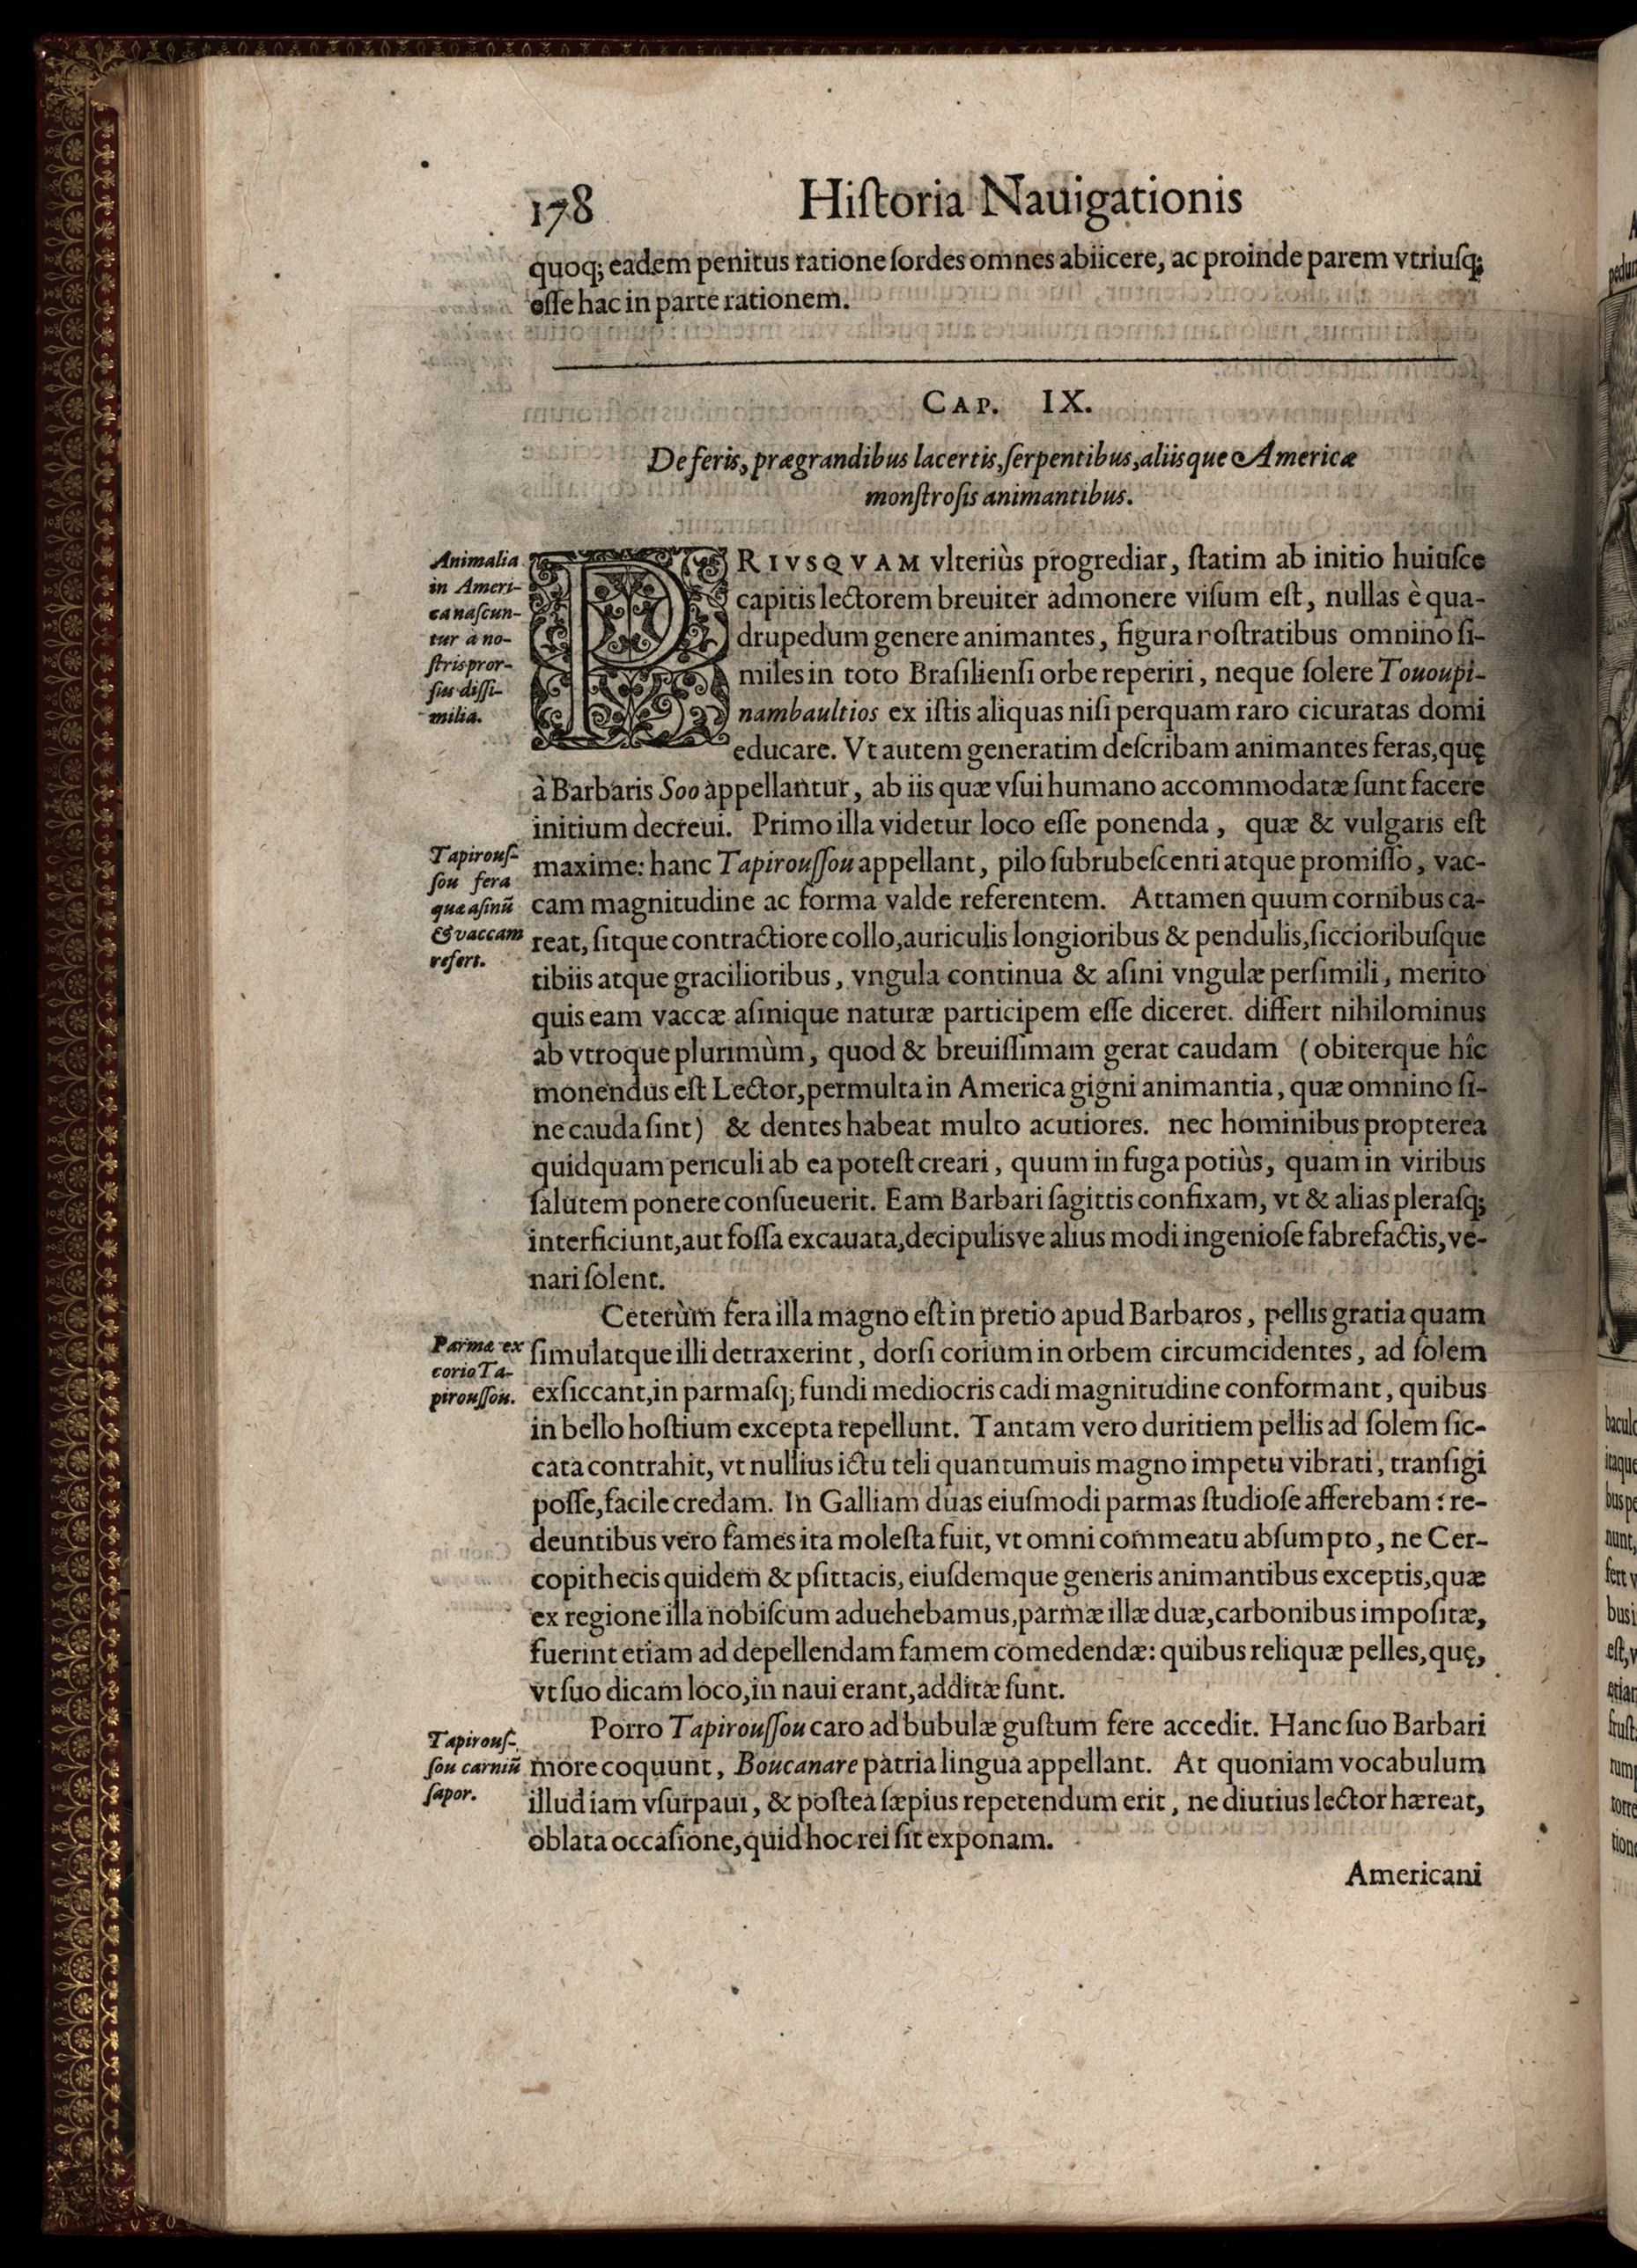 178
Hiſtoria Nauigationis
quoq; eadem penitus ratione ſordes omnes abiicere, ac proinde parem vtriuſq;
eſſe hac in parte rationem.
CAP. IX.
De feris, prægrandibus lacertis, ſerpentibus, aliisque Americæ
monſtroſis animantibus.
Animalia
in Ameri-
ca naſcun-
tur a no-
ſtris pror-
ſus diſſi-
milia.
PRIVSQVAM vlteriùs progrediar, ſtatim ab initio huiuſce
capitis lectorem breuiter admonere viſum eſt, nullas è qua-
drupedum genere animantes, figura noſtratibus omnino ſi-
miles in toto Braſilienſi orbe reperiri, neque ſolere Tououpi-
nambaultios ex iſtis aliquas niſi perquam raro cicuratas domi
educare. Vt autem generatim deſcribam animantes feras, quę
à Barbaris Soo appellantur, ab iis quæ vſui humano accommodatæ ſunt facere
initium decreui. Primo illa videtur loco eſſe ponenda, quæ & vulgaris eſt
Tapirouſ-
ſou fera
quæ aſinũ
& vaccam
refert.
maxime: hanc Tapirouſſou appellant, pilo ſubrubeſcenti atque promiſſo, vac-
cam magnitudine ac forma valde referentem. Attamen quum cornibus ca-
reat, ſitque contractiore collo, auriculis longioribus & pendulis, ſiccioribuſque
tibiis atque gracilioribus, vngula continua & aſini vngulæ perſimili, merito
quis eam vaccæ aſinique naturæ participem eſſe diceret. differt nihilominus
ab vtroque plurimùm, quod & breuiſſimam gerat caudam (obiterque hîc
monendus eſt Lector, permulta in America gigni animantia, quæ omnino ſi-
ne cauda ſint) & dentes habeat multo acutiores. nec hominibus propterea
quidquam periculi ab ea poteſt creari, quum in fuga potiùs, quam in viribus
ſalutem ponere conſueuerit. Eam Barbari ſagittis confixam, vt & alias pleraſq;
interficiunt, aut foſſa excauata, decipulisve alius modi ingenioſe fabrefactis, ve-
nari ſolent.
Ceterùm fera illa magno eſt in pretio apud Barbaros, pellis gratia quam
Parmæ ex
corio Ta-
pirouſſou.
ſimulatque illi detraxerint, dorſi corium in orbem circumcidentes, ad ſolem
exſiccant, in parmaſq; fundi mediocris cadi magnitudine conformant, quibus
in bello hoſtium excepta repellunt. Tantam vero duritiem pellis ad ſolem ſic-
cata contrahit, vt nullius ictu teli quantumuis magno impetu vibrati, tranſigi
poſſe, facile credam. In Galliam duas eiuſmodi parmas ſtudioſe afferebam: re-
deuntibus vero fames ita moleſta fuit, vt omni commeatu abſumpto, ne Cer-
copithecis quidem & pſittacis, eiuſdemque generis animantibus exceptis, quæ
ex regione illa nobiſcum aduehebamus, parmæ illæ duæ, carbonibus impoſitæ,
fuerint etiam ad depellendam famem comedendæ: quibus reliquæ pelles, quę,
vt ſuo dicam loco, in naui erant, additæ ſunt.
Porro Tapirouſſou caro ad bubulæ guſtum fere accedit. Hanc ſuo Barbari
Tapirouſ-
ſou carniũ
ſapor.
more coquunt, Boucanare patria lingua appellant. At quoniam vocabulum
illud iam vſurpaui, & poſtea ſæpius repetendum erit, ne diutius lector hæreat,
oblata occaſione, quid hoc rei ſit exponam.
Americani